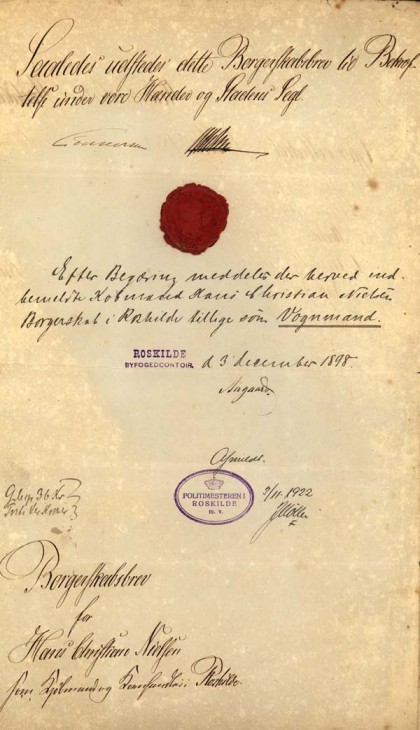 Saaledes udstedes dette Borgerskabsbrev til Bekræf
telse under vore Hænder og Stadens Segl.
Efter Begæring meddeles der herved ind-
bemeldte Kobmand Hans Christian Nielsen
Borgerskab i Roskilde tillige som Vognmand.
ROSKILDE
BYFOGEDCONTOIR.
d 3 december 1898.
Aagaard
Afmeldt.
POLITIMESTEREN I
ROSKILDE
m. v.
3/11 1922
Gebyr 36 Kr
Borgerskabsbrev
for
Hans Christian Nielsen
som Kjøbmand og i Roskilde.